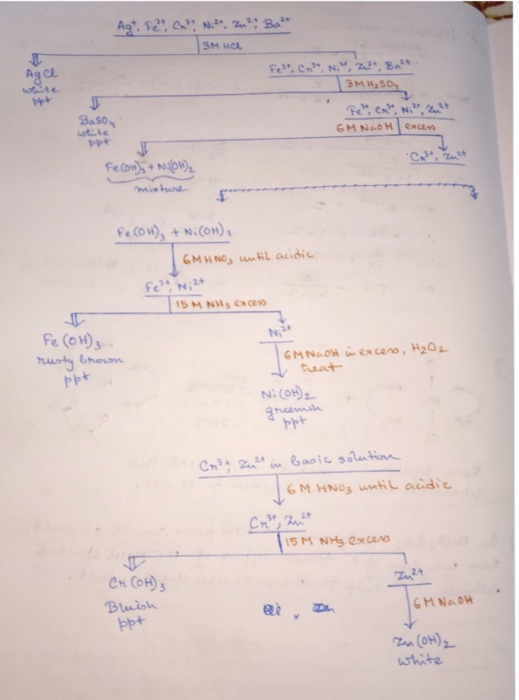 Ag⁺, Fe³⁺, Cr³⁺, Ni²⁺, Zn²⁺, Ba²⁺
3M HCl
AgCl
white
ppt
Fe³⁺, Cr³⁺, Ni²⁺, Zn²⁺, Ba²⁺
3M H₂SO₄
BaSO₄
white
ppt
Fe³⁺, Cr³⁺, Ni²⁺, Zn²⁺
6M NaOH excess
Fe(OH)₃ + Ni(OH)₂
mixture
Cr³⁺, Zn²⁺
Fe(OH)₃ + Ni(OH)₂
6M HNO₃ until acidic
Fe³⁺, Ni²⁺
15M NH₃ excess
Fe(OH)₃
rusty brown
ppt
Ni²⁺
6M NaOH in excess, H₂O₂
treat
Ni(OH)₂
greenish
ppt
Cr³⁺, Zn²⁺ in basic solution
6M HNO₃ until acidic
Cr³⁺, Zn²⁺
15M NH₃ excess
Cr(OH)₃
Bluish
ppt
Zn²⁺
6M NaOH
Zn(OH)₂
white